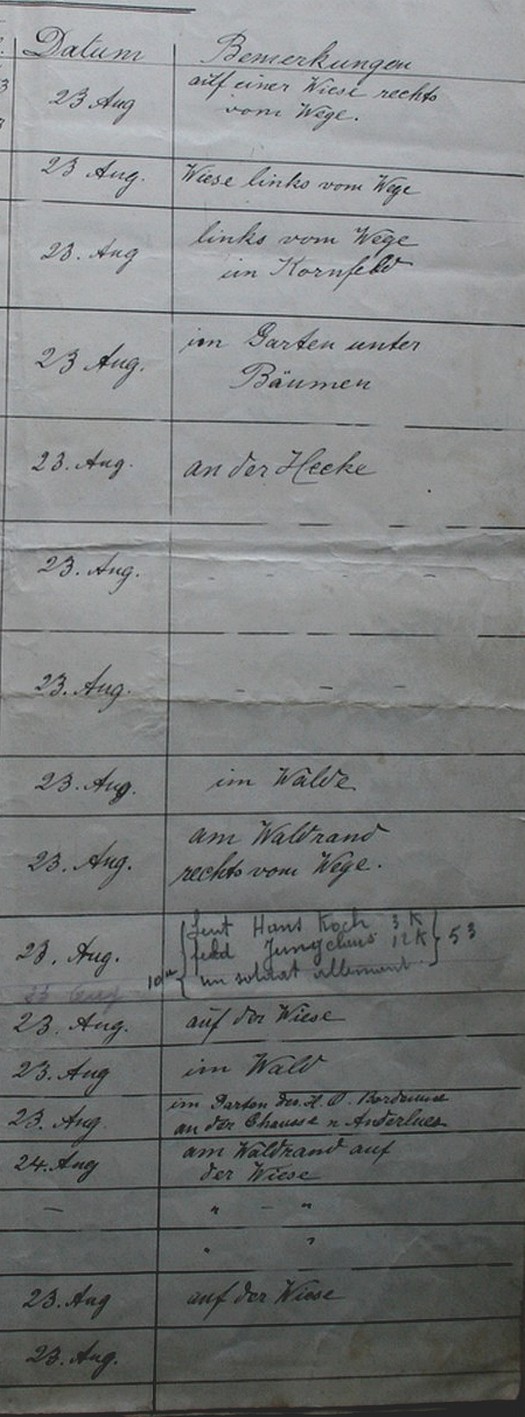 Datum Bemerkungen
23 Aug auf einer Wiese rechts
vom Wege.
23 Aug. Wiese links vom Wege
23. Aug links vom Wege
im Kornfeld
23 Aug. im Garten unter
Bäumen
23. Aug. an der Hecke
23. Aug. - - -
23. Aug. - - -
23. Aug. im Walde
23. Aug. am Waldrand
rechts vom Wege.
23. Aug. Hans Koch 3 K
12 K 53
un soldat allemant
23. Aug. auf der Wiese
23. Aug im Wald
23. Aug. im Garten des H. O.
an der Chausse n Anderlues
24. Aug am Waldrand auf
der Wiese
— " — "
" "
23. Aug auf der Wiese
23. Aug.